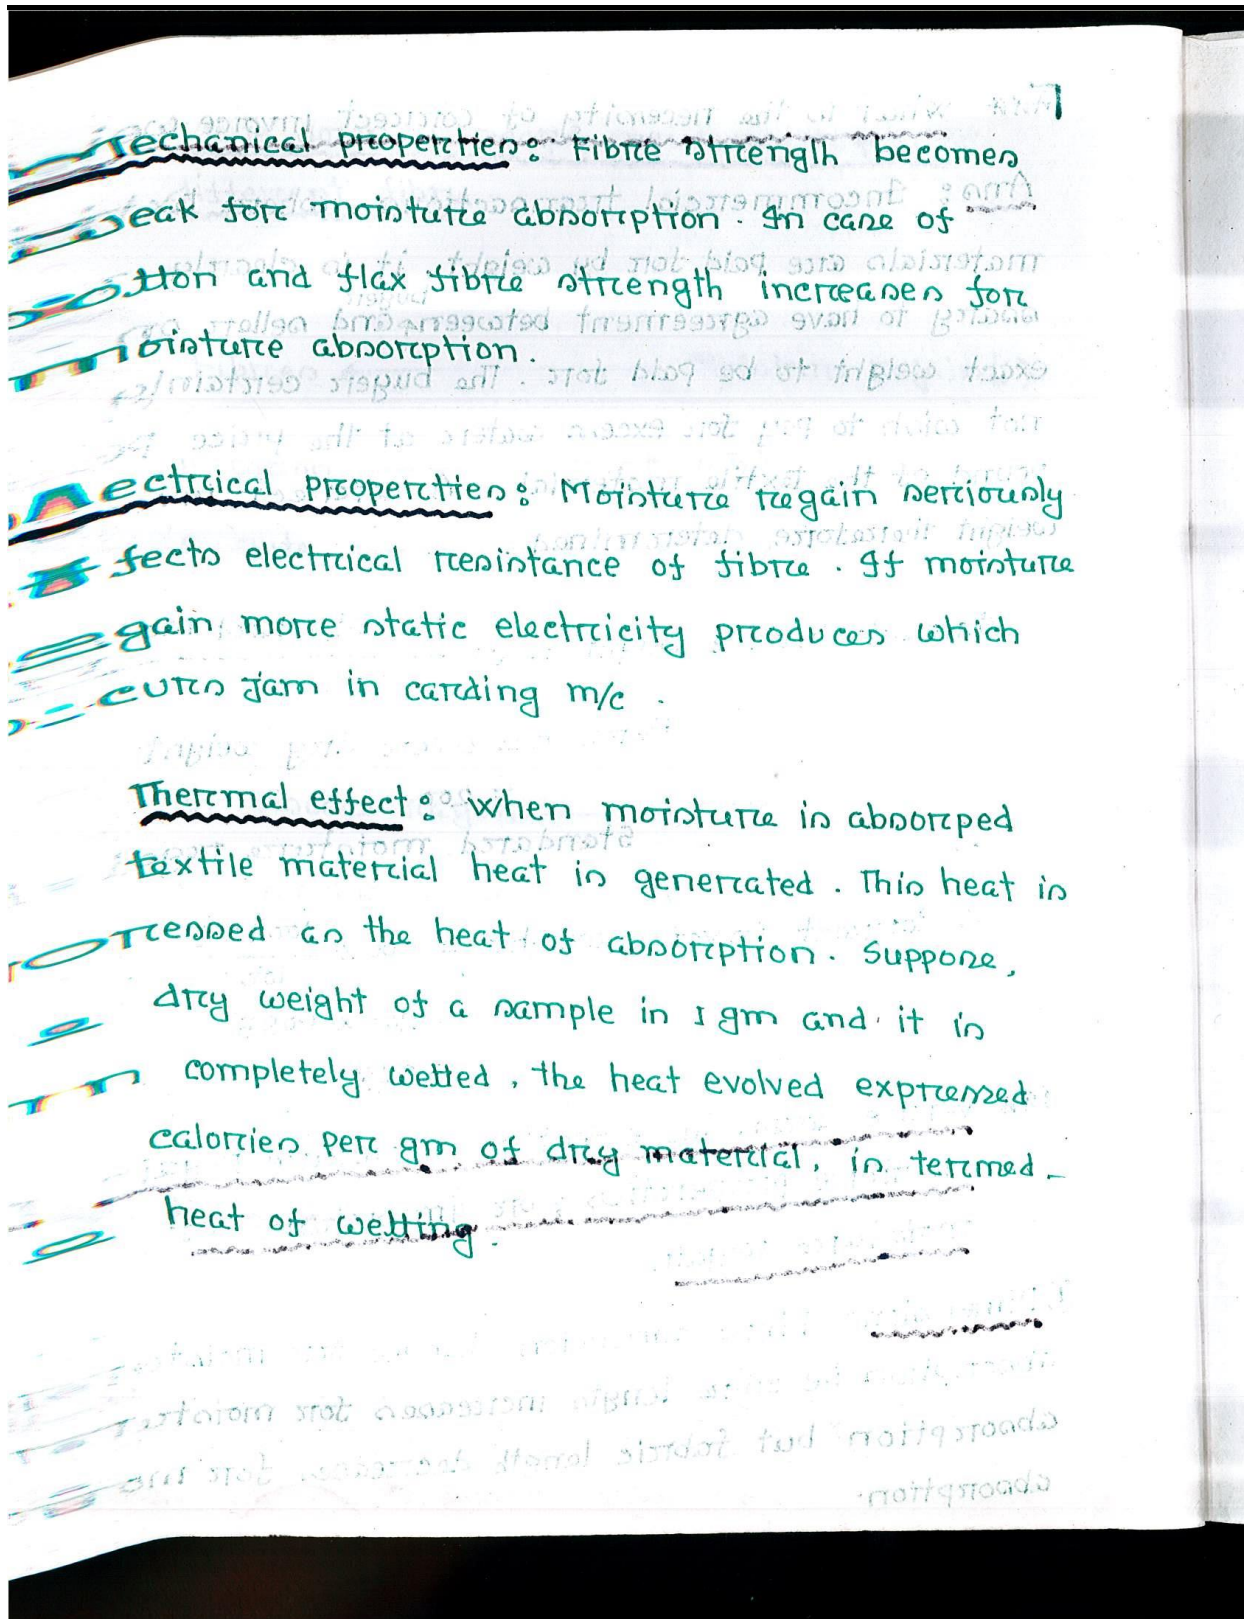 Mechanical properties: Fibre strength becomes
weak for moisture absorption. In case of
cotton and flax fibre strength increases for
moisture absorption.
Electrical properties: Moisture regain seriously
fects electrical resistance of fibre. If moisture
gain more static electricity produces which
curs jam in carding m/c.
Thermal effect: when moisture is absorped
textile material heat is generated. This heat is
ressed as the heat of absorption. Suppose,
dry weight of a sample is 1 gm and it is
completely wetted, the heat evolved expressed
calories per gm of dry material, is termed
heat of wetting.